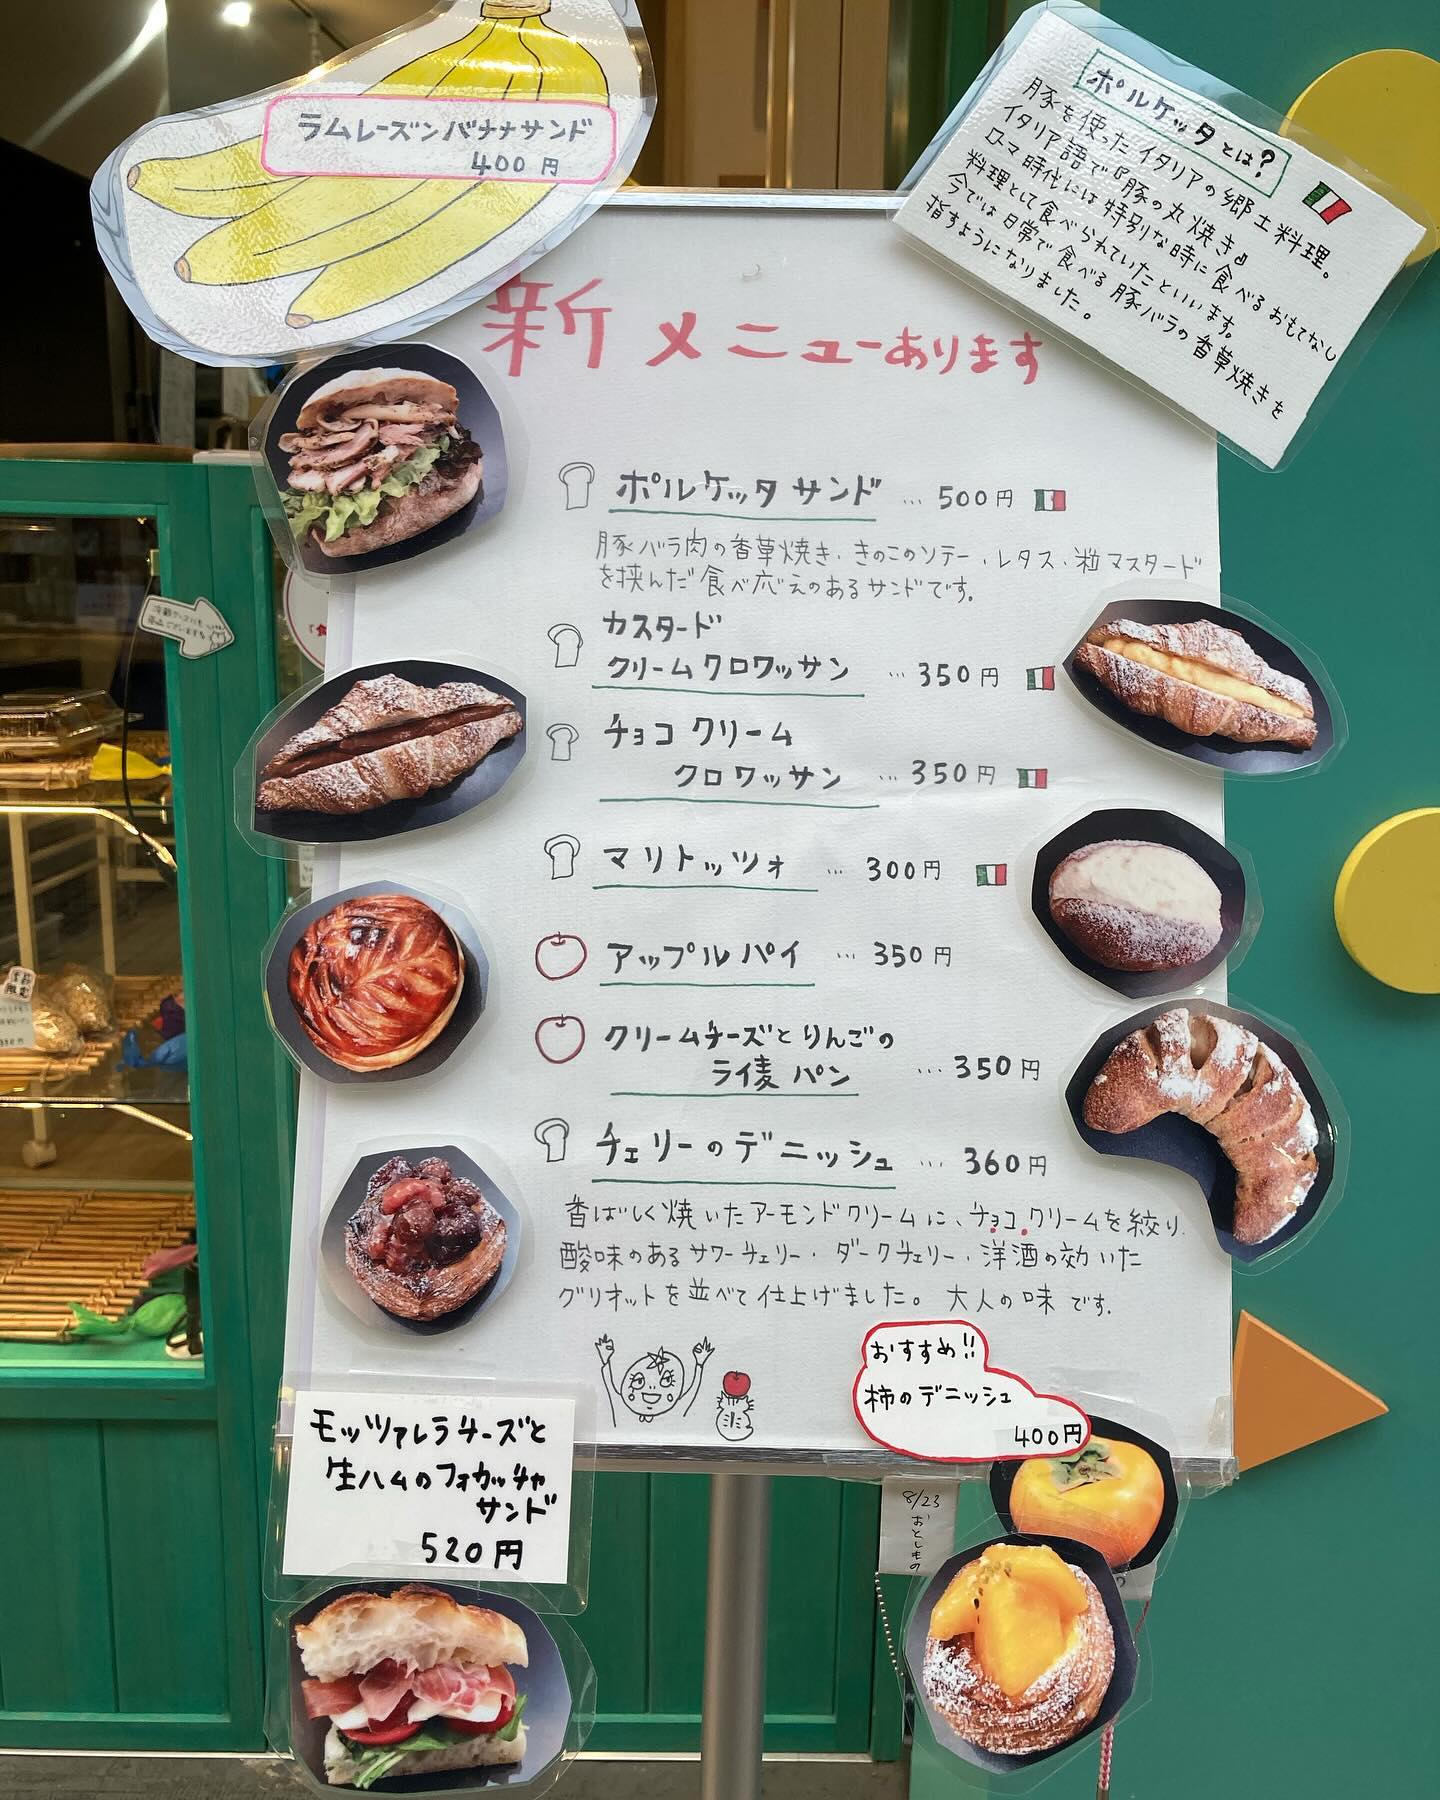 ラムレーズンバナナサンド
400円
ポルケッタとは?
豚を使ったイタリアの郷土料理。
イタリア語で『豚の丸焼き』
ローマ時代には特別な時に食べるおもてなし
料理として食べられていたといいます。
今では日常で食べる豚バラの香草焼きを
指すようになりました。
新メニューあります
ポルケッタサンド … 500円
豚バラ肉の香草焼き、きのこのソテー、レタス、粒マスタード
を挟んだ食べ応えのあるサンドです。
カスタード
クリームクロワッサン … 350円
チョコクリーム
クロワッサン … 350円
マリトッツォ … 300円
アップルパイ … 350円
クリームチーズとりんごの
ライ麦パン … 350円
チェリーのデニッシュ … 360円
香ばしく焼いたアーモンドクリームに、チョコクリームを絞り、
酸味のあるサワーチェリー・ダークチェリー・洋酒の効いた
グリオットを並べて仕上げました。大人の味です。
おすすめ!!
柿のデニッシュ
400円
モッツァレラチーズと
生ハムのフォカッチャ
サンド
520円
8/23
おとしもの